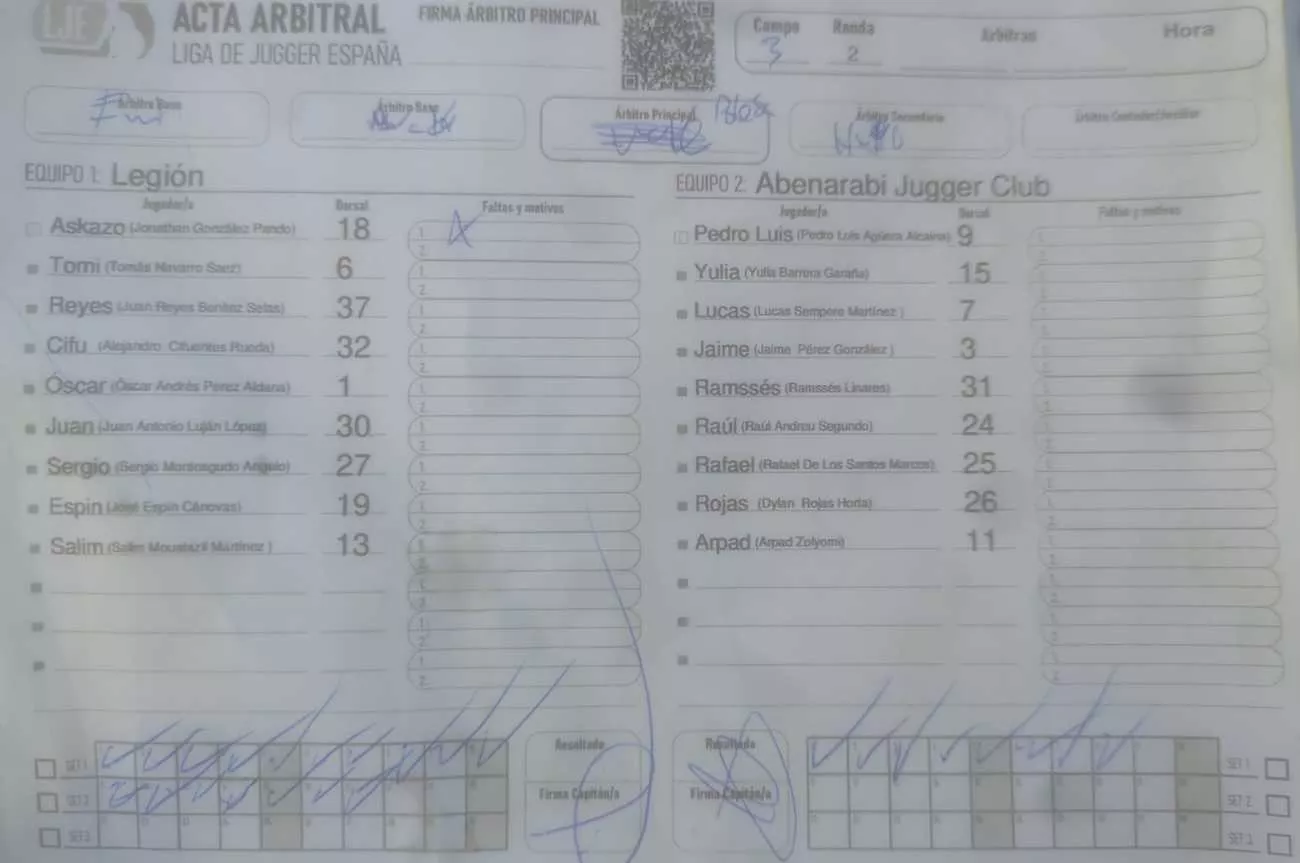 LJE
ACTA ARBITRAL
LIGA DE JUGGER ESPAÑA
FIRMA ÁRBITRO PRINCIPAL
Campo Ronda Árbitros Hora
3 2
Árbitro Base Árbitro Base Árbitro Principal Árbitro Secundario
EQUIPO 1: Legión
Jugador/a Dorsal Faltas y motivos
Askazo (Jonathan González Pando) 18
Tomi (Tomás Navarro Saez) 6
Reyes (Juan Reyes Benitez Salas) 37
Cifu (Alejandro Cifuentes Rueda) 32
Óscar (Óscar Andrés Perez Aldana) 1
Juan (Juan Antonio Luján López) 30
Sergio (Sergio Monteagudo Angulo) 27
Espin (José Espin Cánovas) 19
Salim (Salim Moustazil Martinez ) 13
EQUIPO 2: Abenarabi Jugger Club
Jugador/a Dorsal Faltas y motivos
Pedro Luis (Pedro Luis Agüera Alcaina) 9
Yulia (Yulia Barrera Garaña) 15
Lucas (Lucas Sempere Martínez ) 7
Jaime (Jaime Pérez González ) 3
Ramssés (Ramssés Linares) 31
Raúl (Raúl Andreu Segundo) 24
Rafael (Rafael De Los Santos Marcos) 25
Rojas (Dylan Rojas Horta) 26
Arpad (Arpad Zolyomi) 11
SET 1
SET 2
SET 3
Resultado
Firma Capitán/a
Resultado
Firma Capitán/a
SET 1
SET 2
SET 3